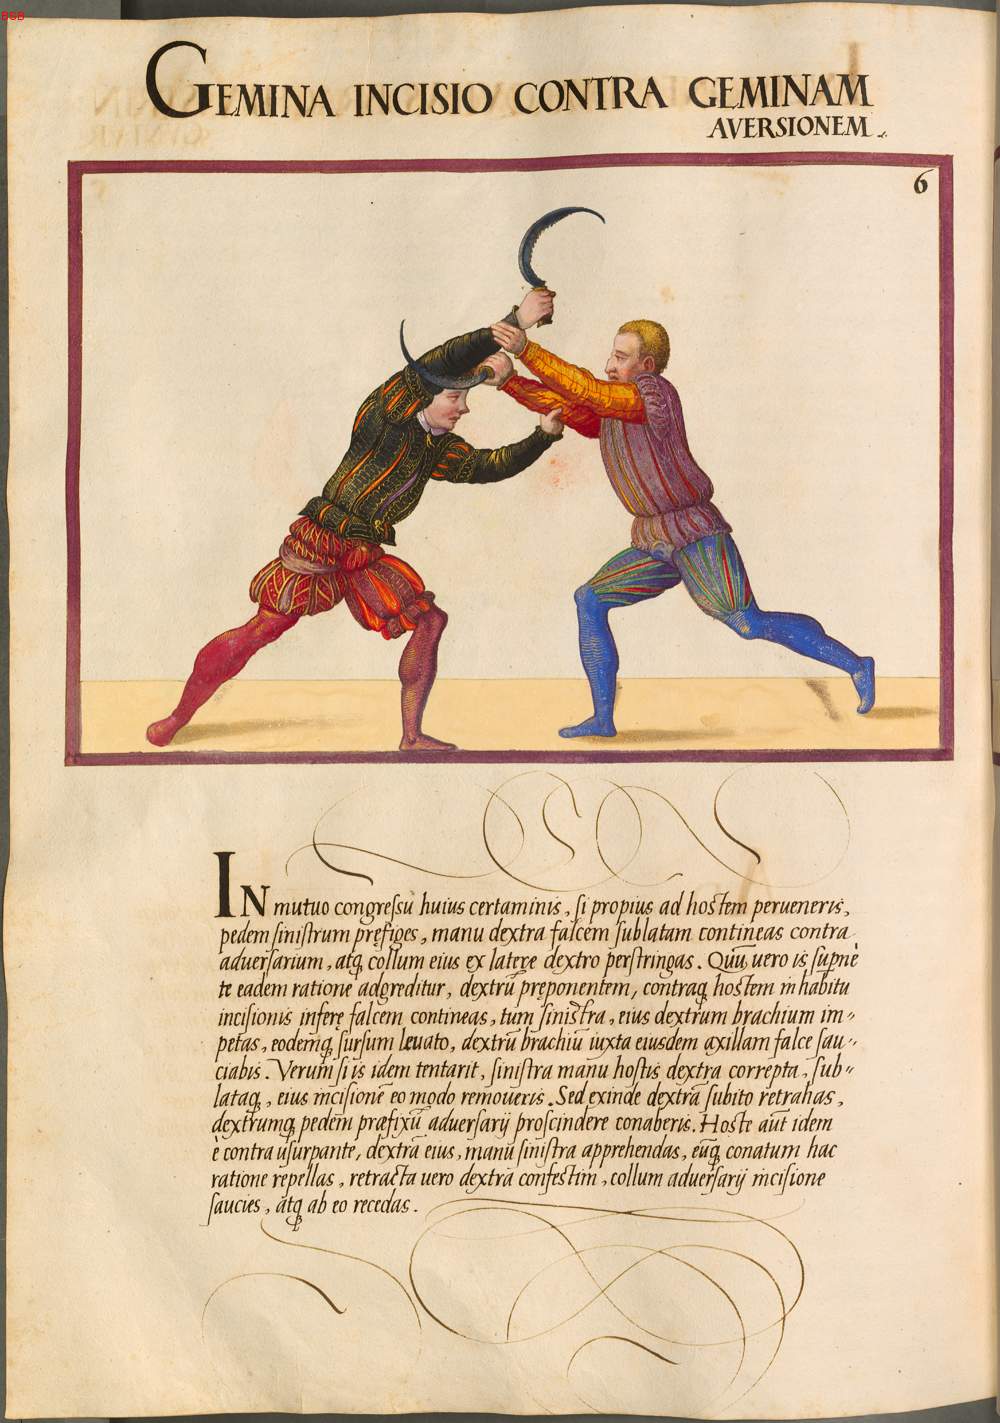 BSB
GEMINA INCISIO CONTRA GEMINAM
AVERSIONEM
6
IN mutuo congressu huius certaminis, si propius ad hostem perueneris,
pedem sinistrum pręfiges, manu dextra falcem sublatam contineas contra
aduersarium, atq; collum eius ex latere dextro perstringas. Quū uero is supnè
te eadem ratione adgreditur, dextrū pręponentem, contraq; hostem in habitu
incisionis inferę falcem contineas, tum sinistra, eius dextrum brachium im=
petas, eodemq; sursum leuato, dextrū brachiū iuxta eiusdem axillam falce sau=
ciabis. Verum si is idem tentarit, sinistra manu hostis dextra correpta, sub=
lataq;, eius incisionē eo modo remoueris. Sed exinde dextrā subito retrahas,
dextrumq; pedem præfixū aduersarij proscindere conaberis. Hoste aūt idem
è contra usurpante, dextrā eius, manu sinistra apprehendas, eūq; conatum hac
ratione repellas, retracta uero dextra confestim, collum aduersarij incisione
saucies, atq; ab eo recedas.